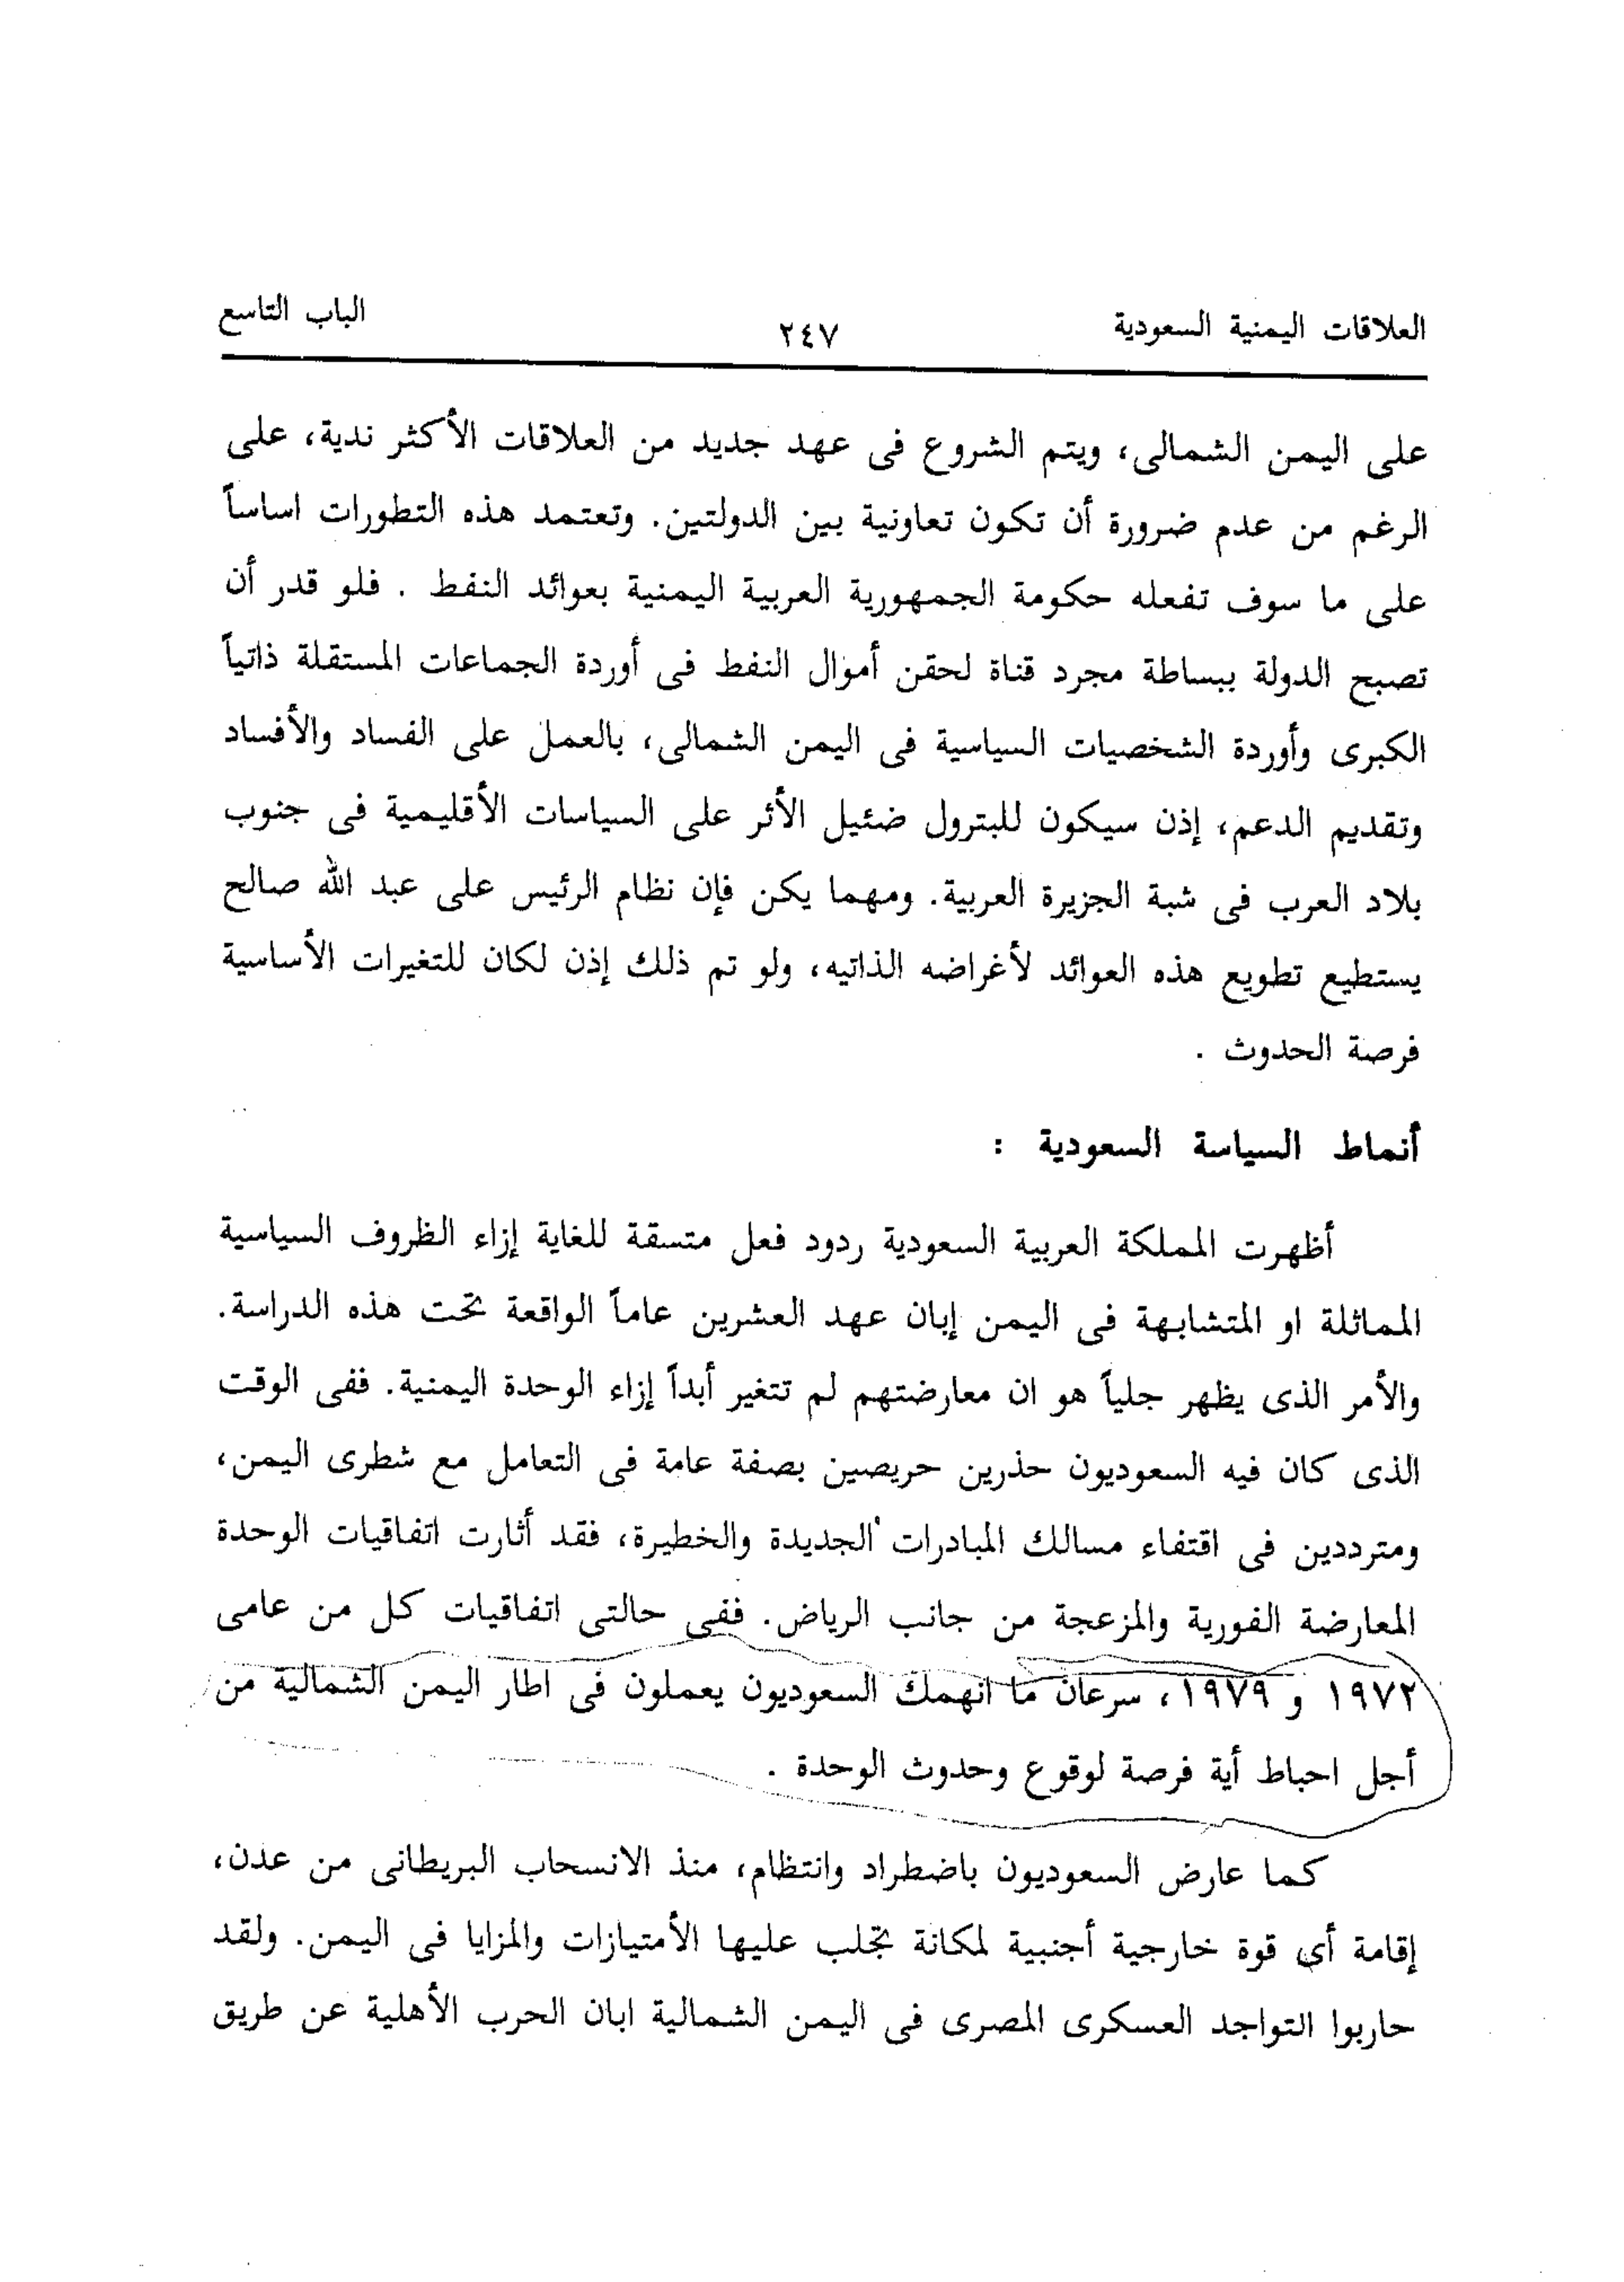 العلاقات اليمنية السعودية ٢٤٧ الباب التاسع
على اليمن الشمالى، ويتم الشروع فى عهد جديد من العلاقات الأكثر ندية، على
الرغم من عدم ضرورة أن تكون تعاونية بين الدولتين. وتعتمد هذه التطورات اساساً
على ما سوف تفعله حكومة الجمهورية العربية اليمنية بعوائد النفط . فلو قدر أن
تصبح الدولة ببساطة مجرد قناة لحقن أموال النفط فى أوردة الجماعات المستقلة ذاتياً
الكبرى وأوردة الشخصيات السياسية فى اليمن الشمالى، بالعمل على الفساد والأفساد
وتقديم الدعم، إذن سيكون للبترول ضئيل الأثر على السياسات الأقليمية فى جنوب
بلاد العرب فى شبة الجزيرة العربية. ومهما يكن فإن نظام الرئيس على عبد الله صالح
يستطيع تطويع هذه العوائد لأغراضه الذاتيه، ولو تم ذلك إذن لكان للتغيرات الأساسية
فرصة الحدوث .
أنماط السياسة السعودية :
أظهرت المملكة العربية السعودية ردود فعل متسقة للغاية إزاء الظروف السياسية
المماثلة او المتشابهة فى اليمن إبان عهد العشرين عاماً الواقعة تحت هذه الدراسة.
والأمر الذى يظهر جلياً هو ان معارضتهم لم تتغير أبداً إزاء الوحدة اليمنية. ففى الوقت
الذى كان فيه السعوديون حذرين حريصين بصفة عامة فى التعامل مع شطرى اليمن،
ومترددين فى اقتفاء مسالك المبادرات الجديدة والخطيرة، فقد أثارت اتفاقيات الوحدة
المعارضة الفورية والمزعجة من جانب الرياض. ففى حالتى اتفاقيات كل من عامى
١٩٧٢ و ١٩٧٩، سرعان ما انهمك السعوديون يعملون فى اطار اليمن الشمالية من
أجل احباط أية فرصة لوقوع وحدوث الوحدة .
كما عارض السعوديون باضطراد وانتظام، منذ الانسحاب البريطانى من عدن،
إقامة أى قوة خارجية أجنبية لمكانة تجلب عليها الأمتيازات والمزايا فى اليمن. ولقد
حاربوا التواجد العسكرى المصرى فى اليمن الشمالية ابان الحرب الأهلية عن طريق